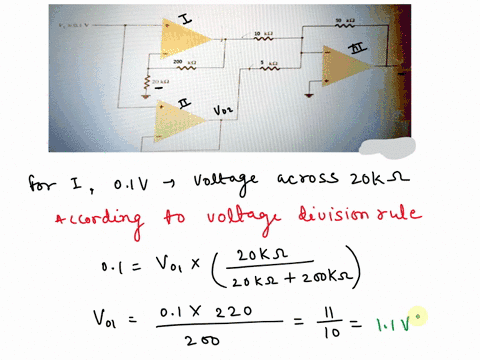 I
10 kΩ
50 kΩ
III
200 kΩ
5 kΩ
20 kΩ
II
Vo2
for I, 0.1V → voltage across 20KΩ
According to voltage division rule
0.1 = Vo1 × ( 20KΩ / 20KΩ + 200KΩ )
Vo1 = 0.1 × 220 / 200 = 11 / 10 = 1.1V